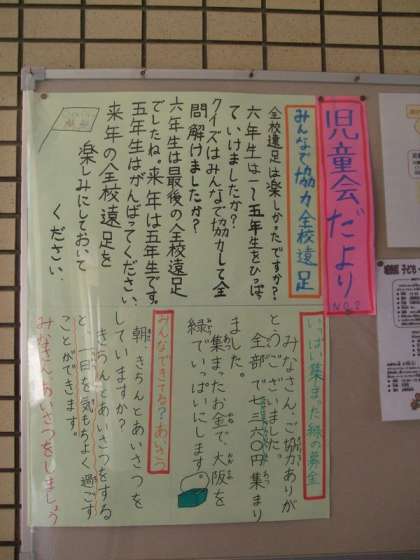 児童会だより
NO.2
みんなで協力全校遠足
全校遠足は楽しかったですか?
六年生は一～五年生をひっぱっ
ていけましたか?
クイズはみんなで協力して全
問解けましたか?
六年生は最後の全校遠足
でしたね。来年は五年生です。
五年生はがんばってください。
来年の全校遠足を
楽しみにしておいて
ください。
いっぱい集まった緑の募金
みなさん、ご協力ありが
とうございました。
全部で七三六〇円集まり
ました。
集まったお金で、大阪を
緑でいっぱいにします。
みんなできてる?あいさつ
朝、きちんとあいさつを
していますか?
きちんとあいさつをする
と、一日を気もちよく過ごす
ことができます。
みなさんあいさつをしましょう